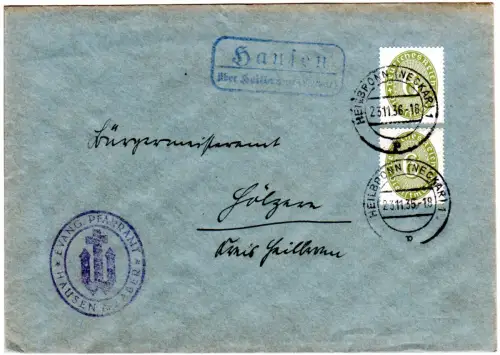 Hausen
über Heilbronn (Neckar)
HEILBRONN (NECKAR) 1
23.11.36.-18
HEILBRONN (NECKAR) 1
23.11.36.-18
Bürgermeisteramt
Hölzern
Kreis Heilbronn
EVANG. PFARRAMT
HAUSEN